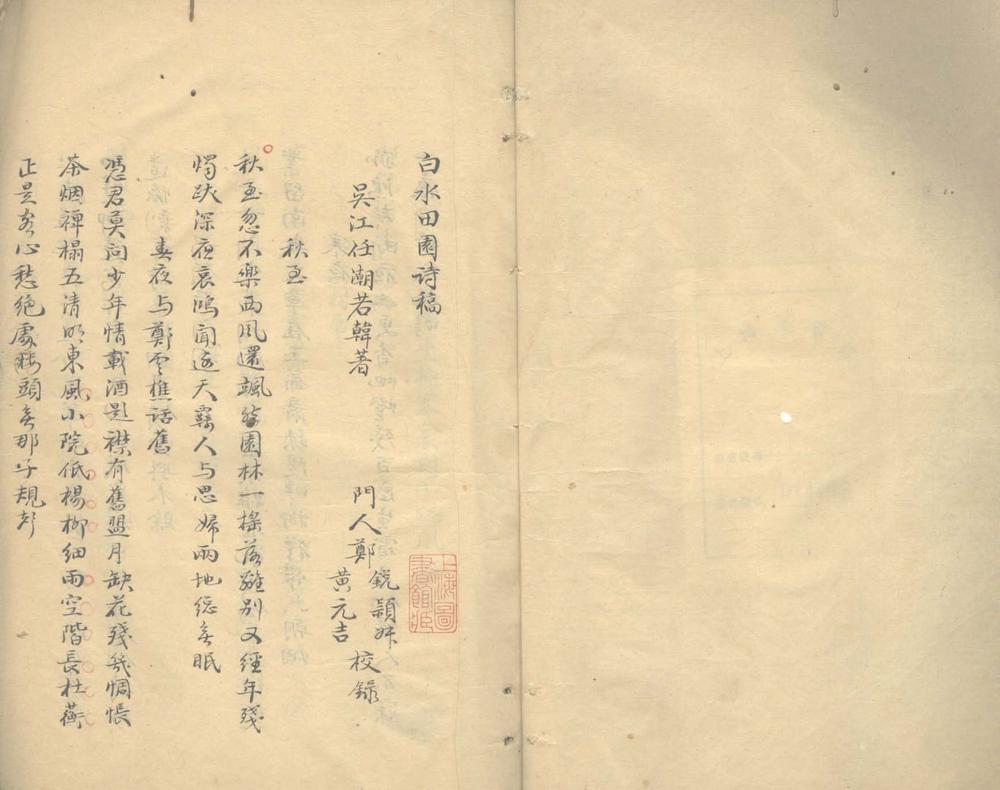 白水田園詩稿
吳江任潮若韓著
門人鄭鐃穎妹黃元吉校錄
上海圖書館藏
秋至
秋至忽不樂西風還颯然園林一搖落離別又經年殘
燭跋深夜哀鴻聞遠天羇人与思婦兩地總無眠
春夜与鄭雲樵話舊
憑君莫问少年情載酒題襟有舊盟月缺花殘幾惆悵
茶烟禪榻五清明東風小院低楊柳細雨空階長杜蘅
正是客心愁絕處枝頭無那子規聲